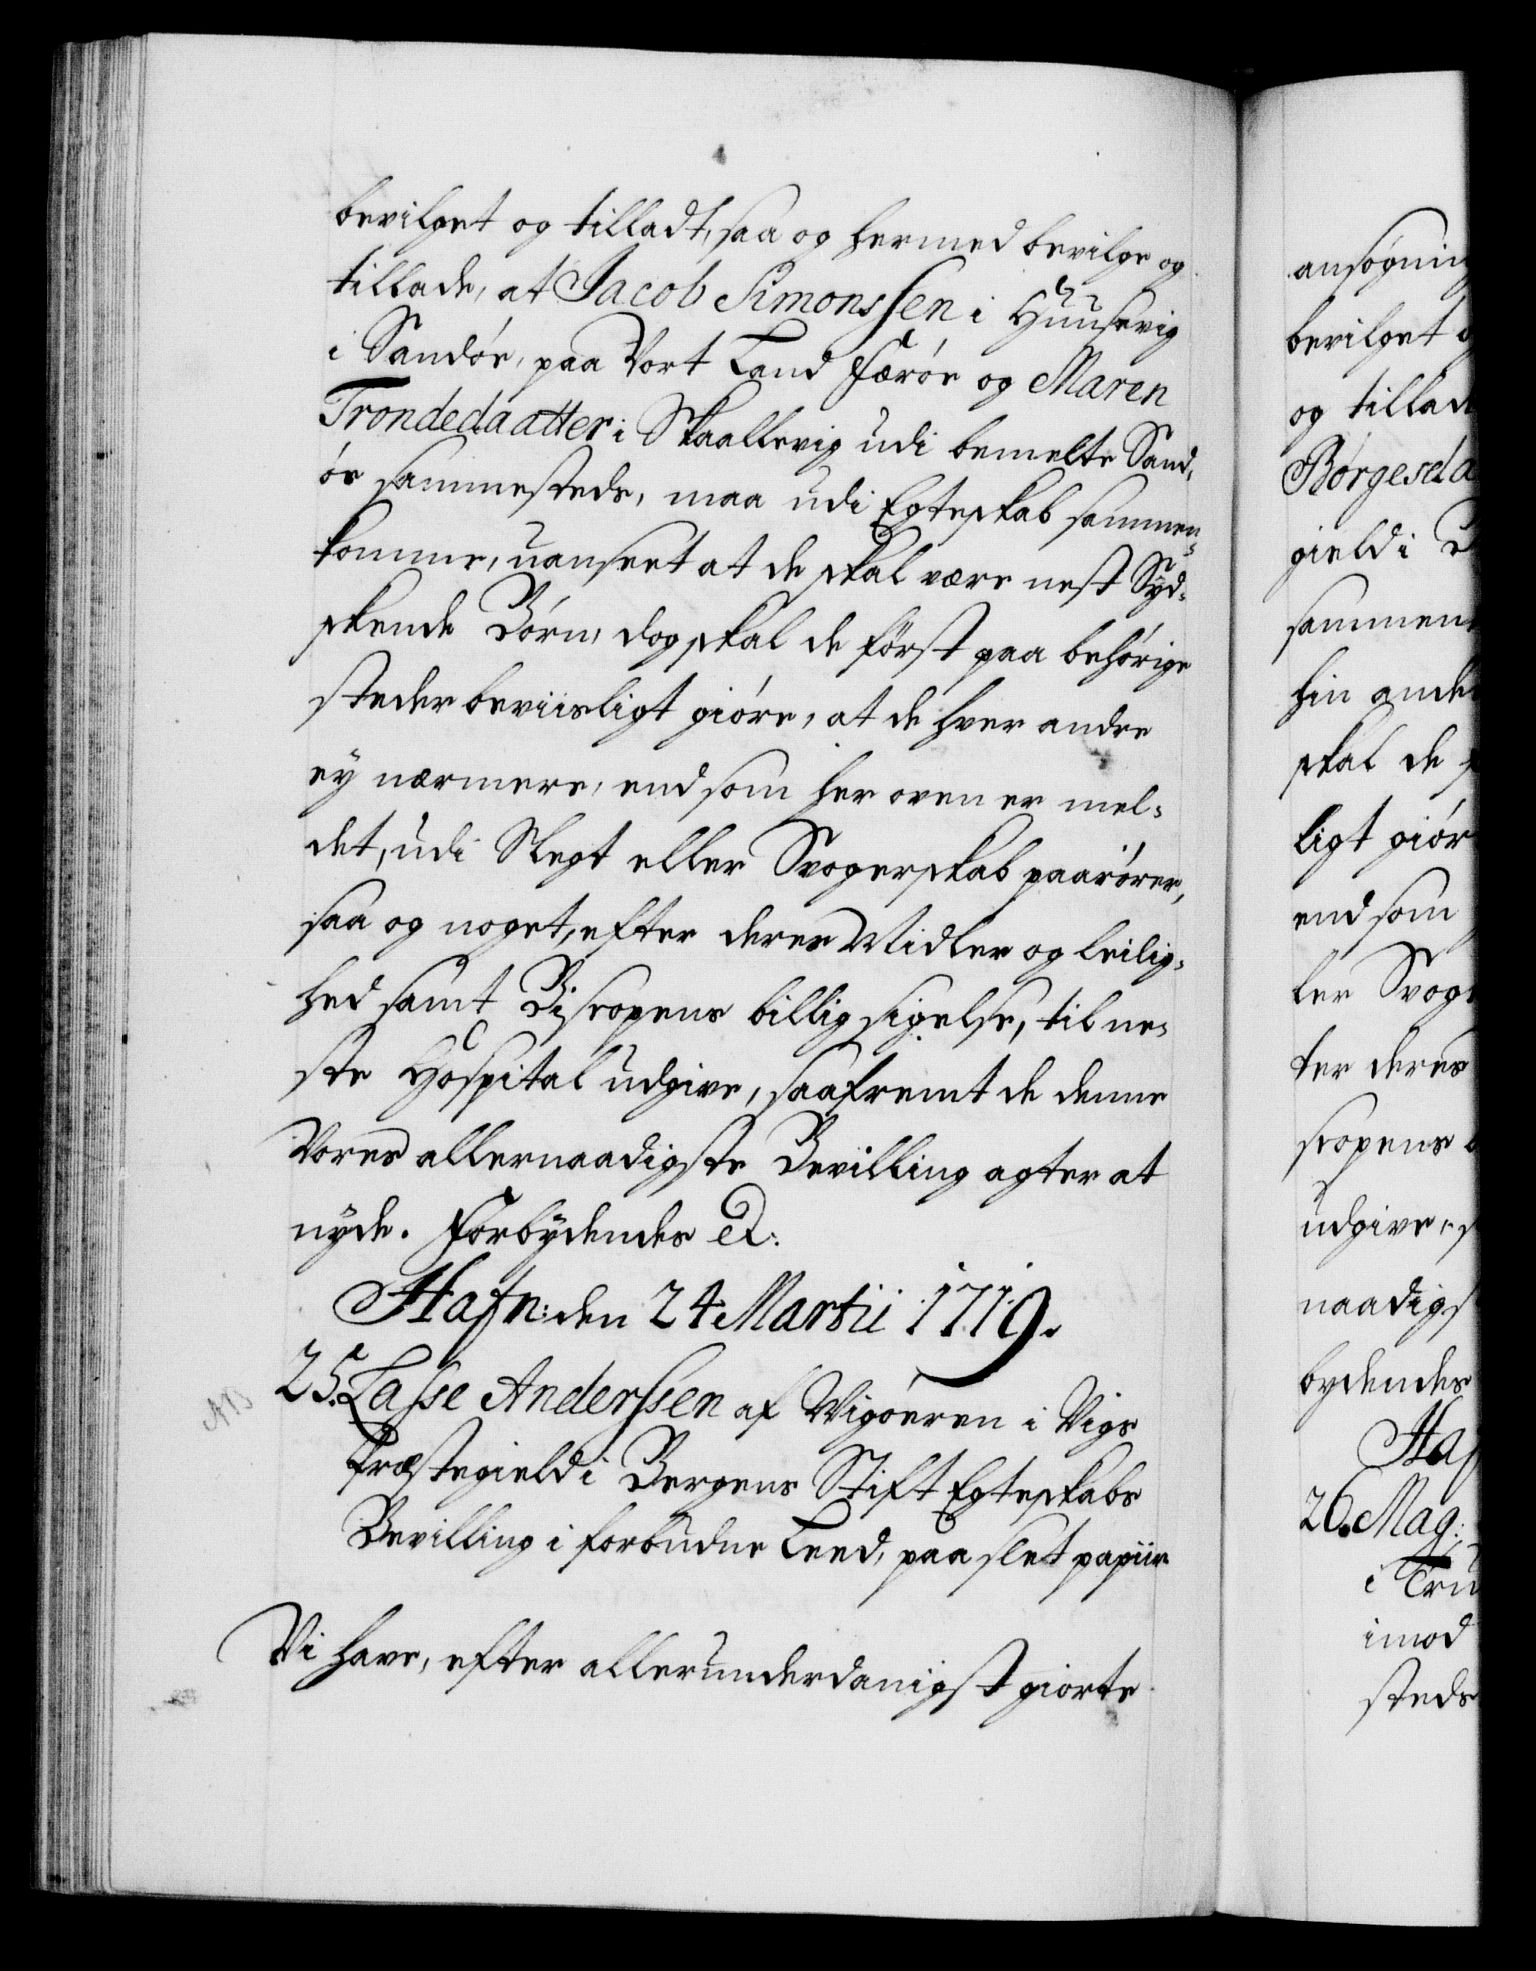 bevilget og tilladt, saa og hermed bevilge og
tillade, at Jacob Simonssen i Huusevig
i Sandöe, paa Vort Land Færöe og Maren
Trondedaatter i Skaallevig udi bemelte Sand-
öe sammesteds, maa udi Egteskab sammen-
komme, uanseet at de skal være nest Syd-
skende Börn, dog skal de först paa behörige
steder beviisligt giöre, at de hver andre
ey nærmere, end som her oven er mel-
det, udi Slegt eller Svogerskab paarörer,
saa og noget, efter deres Midler og leilig-
hed samt Biscopens billig sigelse, til ne-
ste Hospital udgive, saafremt de denne
Vores allernaadigste Bevilling agter at
nyde. Forbydendes &:
Hafn: den 24 Martii 1719.
25. Lasse Anderssen af Wigöeren i Vigs
Præstegield i Bergens Stift Egteskabs
Bevilling i forbudne Leed, paa slet papiir
NB
Vi have, efter allerunderdanigst giorte
ansögning
bevilget o
og tillad
Börgesda
gield i
sammen
hin ande
skal de
ligt giör
end som
ler Svog
ter deres
scopens b
udgive, s
naadigs
bydendes
Haf
26. Mag:
i Tru
imod
steds